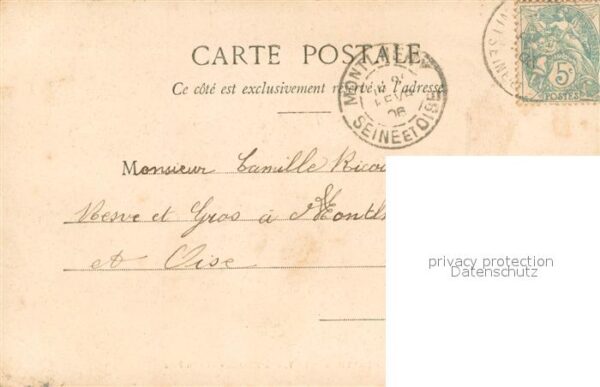 CARTE POSTALE
Ce côté est exclusivement réservé à l'adresse
MONTLHERY
FEVR
06
SEINE ET OISE
5c
POSTES
Monsieur Camille Rico
et Gros à Montl
et Oise
privacy protection
Datenschutz